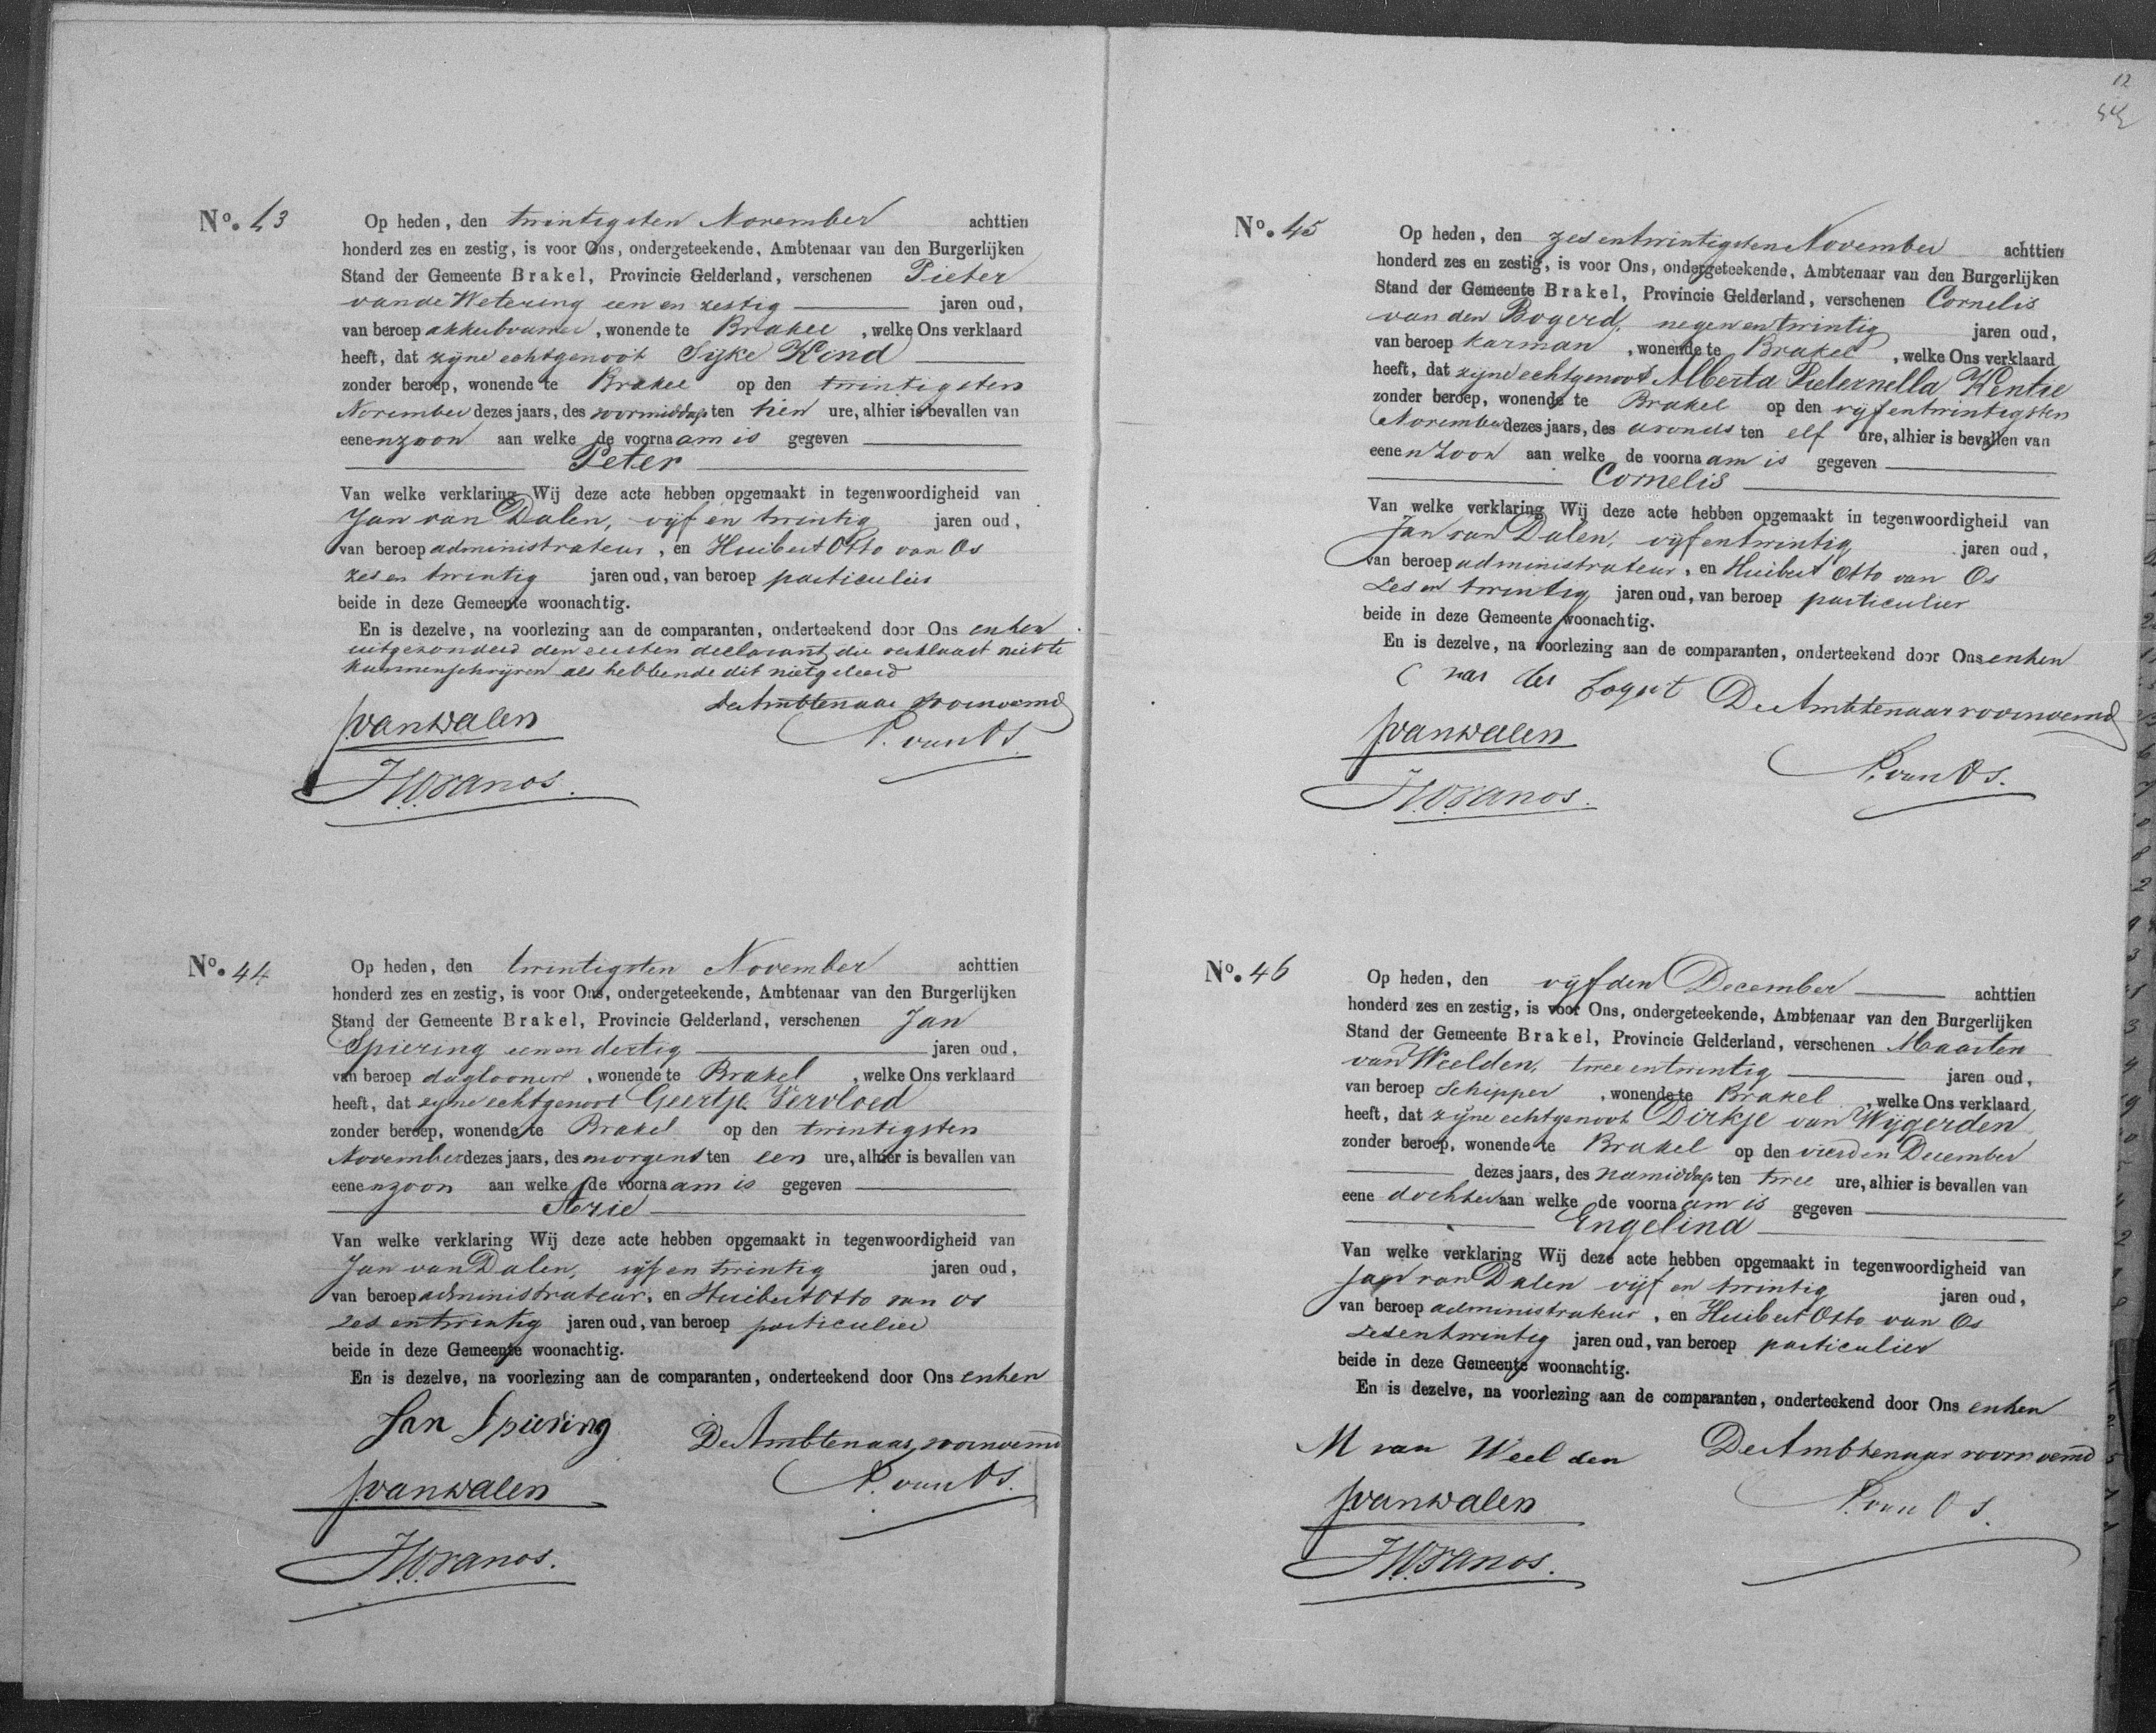 No. 43
Op heden, den twintigsten November achttien
honderd zes en zestig, is voor Ons, ondergeteekende, Ambtenaar van den Burgerlijken
Stand der Gemeente Brakel, Provincie Gelderland, verschenen Pieter
van de Wetering een en zestig jaren oud,
van beroep akkerbouwer, wonende te Brakel, welke Ons verklaard
heeft, dat zijne echtgenoot Sijke Kond
zonder beroep, wonende te Brakel op den twintigsten
November dezes jaars, des voormiddags ten tien ure, alhier is bevallen van
eenen zoon aan welke de voornaam is gegeven
Peter
Van welke verklaring Wij deze acte hebben opgemaakt in tegenwoordigheid van
Jan van Dalen, vijf en twintig jaren oud,
van beroep administrateur, en Huibert Otto van Os
zes en twintig jaren oud, van beroep particulier
beide in deze Gemeente woonachtig.
En is dezelve, na voorlezing aan de comparanten, onderteekend door Ons en hen
uitgezonderd den eersten declarant, die verklaart niet te
kunnen schrijven als hebbende dit niet geleerd
de Ambtenaar voornoemd
J van Dalen
P. van Os
H.O. van Os.
No. 44
Op heden, den twintigsten November achttien
honderd zes en zestig, is voor Ons, ondergeteekende, Ambtenaar van den Burgerlijken
Stand der Gemeente Brakel, Provincie Gelderland, verschenen Jan
Spiering een en dertig jaren oud,
van beroep daglooner, wonende te Brakel, welke Ons verklaard
heeft, dat zijne echtgenoot Geertje Vervloed
zonder beroep, wonende te Brakel op den twintigsten
November dezes jaars, des morgens ten een ure, alhier is bevallen van
eenen zoon aan welke de voornaam is gegeven
Aerie
Van welke verklaring Wij deze acte hebben opgemaakt in tegenwoordigheid van
Jan van Dalen, vijf en twintig jaren oud,
van beroep administrateur, en Huibert Otto van Os
zes en twintig jaren oud, van beroep particulier
beide in deze Gemeente woonachtig.
En is dezelve, na voorlezing aan de comparanten, onderteekend door Ons en hen
Jan Spiering
De Ambtenaar voornoemd
J van Dalen
P. van Os.
H.O. van Os.
12
No. 45
Op heden, den zes en twintigsten November achttien
honderd zes en zestig, is voor Ons, ondergeteekende, Ambtenaar van den Burgerlijken
Stand der Gemeente Brakel, Provincie Gelderland, verschenen Cornelis
van den Bogerd, negen en twintig jaren oud,
van beroep karman, wonende te Brakel, welke Ons verklaard
heeft, dat zijne echtgenoot Alberta Pieternella Kentie
zonder beroep, wonende te Brakel op den vijf en twintigsten
November dezes jaars, des avonds ten elf ure, alhier is bevallen van
eenen zoon aan welke de voornaam is gegeven
Cornelis
Van welke verklaring Wij deze acte hebben opgemaakt in tegenwoordigheid van
Jan van Dalen, vijf en twintig jaren oud,
van beroep administrateur, en Huibert Otto van Os
zes en twintig jaren oud, van beroep particulier
beide in deze Gemeente woonachtig.
En is dezelve, na voorlezing aan de comparanten, onderteekend door Ons en hen
De Ambtenaar voornoemd
J van Dalen
P. van Os.
H.O. van Os.
No. 46
Op heden, den vijfden December achttien
honderd zes en zestig, is voor Ons, ondergeteekende, Ambtenaar van den Burgerlijken
Stand der Gemeente Brakel, Provincie Gelderland, verschenen Maarten
van Weelden, twee en twintig jaren oud,
van beroep Schipper, wonende te Brakel, welke Ons verklaard
heeft, dat zijne echtgenoot Dirkje van Wijgerden
zonder beroep, wonende te Brakel op den vierden December
dezes jaars, des namiddags ten twee ure, alhier is bevallen van
eene dochter aan welke de voornaam is gegeven
Engelina
Van welke verklaring Wij deze acte hebben opgemaakt in tegenwoordigheid van
Jan van Dalen vijf en twintig jaren oud,
van beroep administrateur, en Huibert Otto van Os
zes en twintig jaren oud, van beroep particulier
beide in deze Gemeente woonachtig.
En is dezelve, na voorlezing aan de comparanten, onderteekend door Ons en hen
M van Weelden
De Ambtenaar voornoemd
J van Dalen
P. van Os.
H.O. van Os.